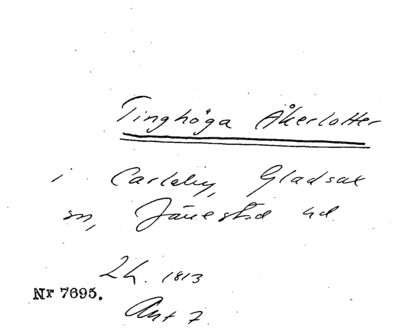 Tinghöga Åkerlotter
i Carleby, Gladsax
sn, Järrestad hd.
Lh. 1813
Nr 7695.
Akt 7